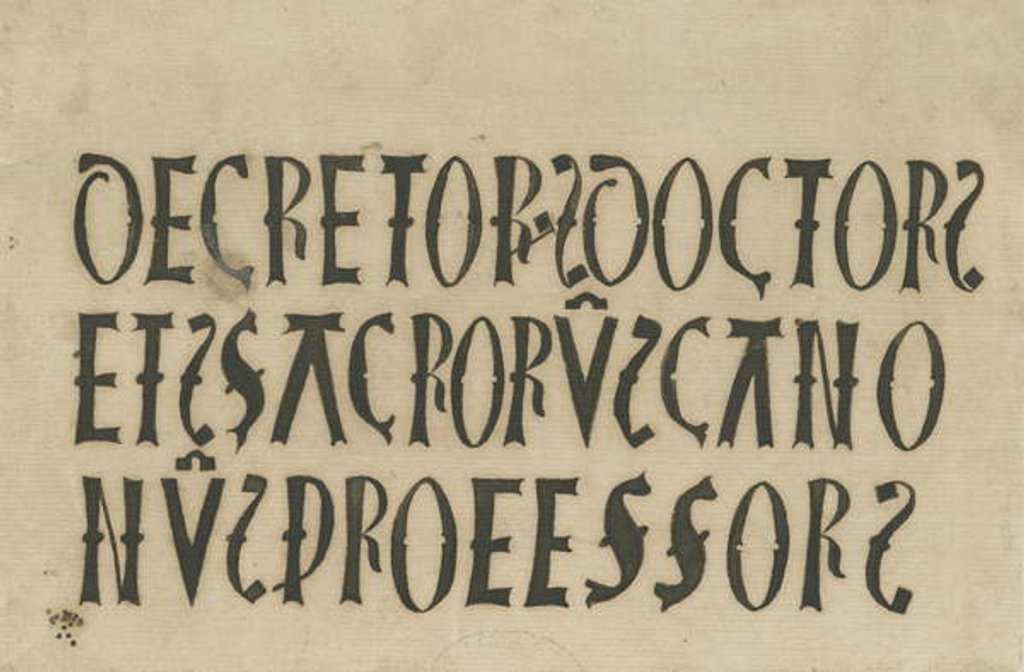 DECRETOꝶ Ƨ DOCTOR Ƨ
ET Ƨ SACRORV̂ Ƨ CANO
NV̂ Ƨ PROEESSOR Ƨ